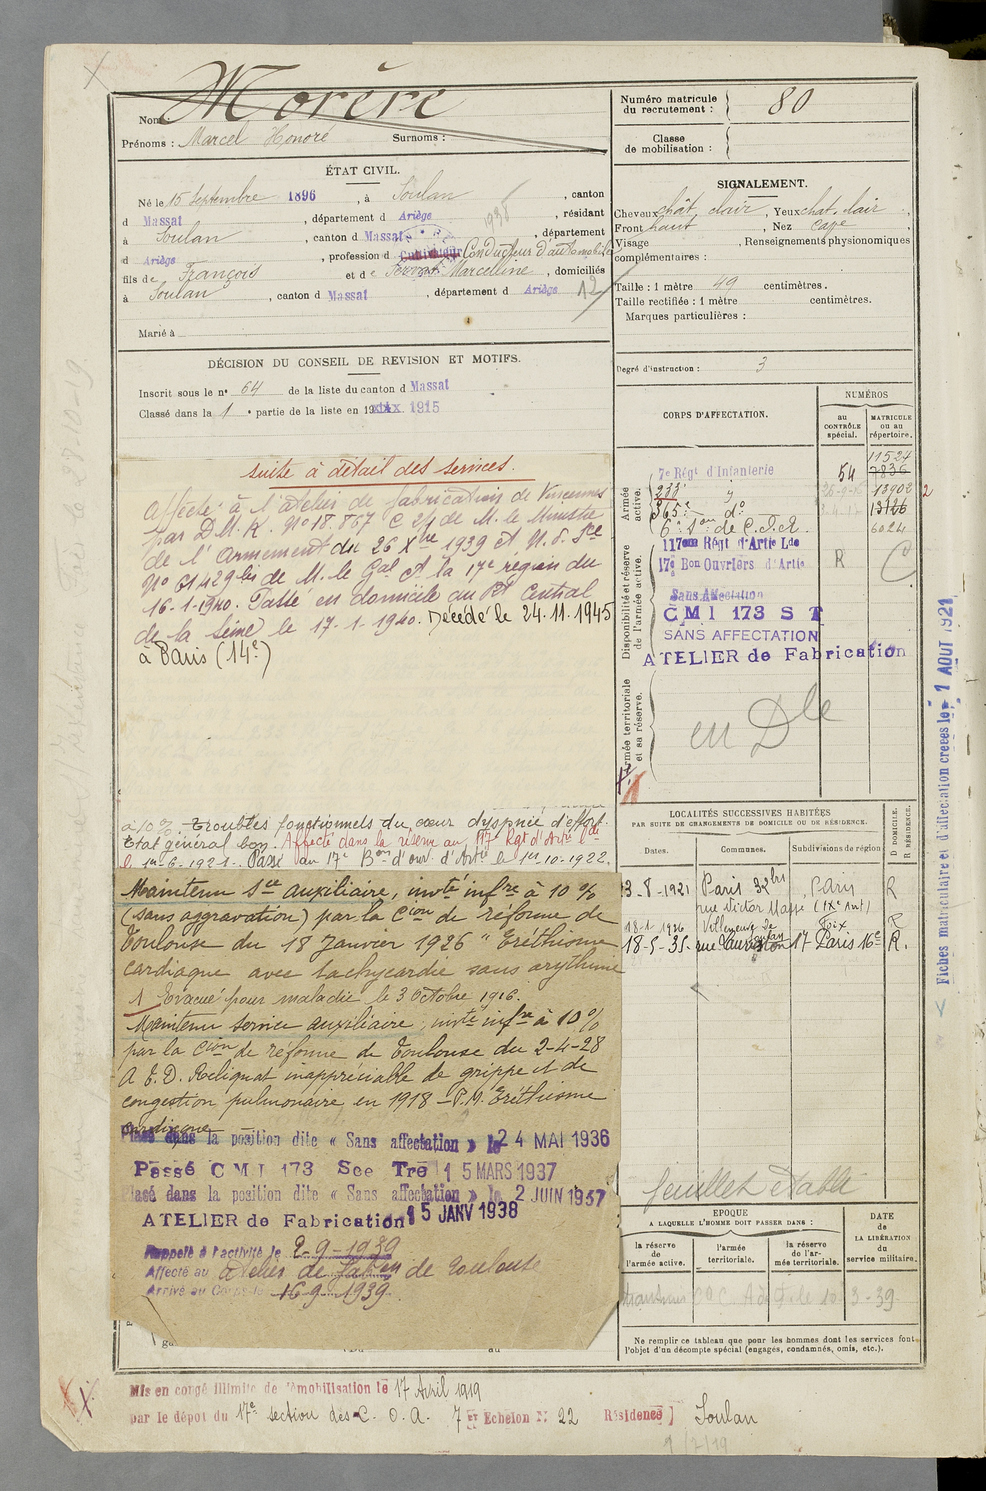 Nom Morère
Prénoms : Marcel Honoré Surnoms :
ÉTAT CIVIL.
Né le 15 Septembre 1896, à Soulan, canton
d Massat, département d Ariège, résidant
à Soulan, canton d Massat, département
d Ariège, profession d Cultivateur Conducteur d'automobile
fils de François et de Servat Marcelline, domiciliés
à Soulan, canton d Massat, département d Ariège 12
Marié à
DÉCISION DU CONSEIL DE REVISION ET MOTIFS.
Inscrit sous le nº 64 de la liste du canton d Massat
Classé dans la 1 e partie de la liste en 19 1915
suite à détail des services.
Affecté à l'atelier de fabrication de Vincennes
par D.M.R. Nº 18.867 C 2/1 de M. le Ministre
de l'Armement du 26 Xbre 1939 et N.S. Sce
Nº 61429 bis de M. le Gal Ct la 17e région du
16-1-1940. Passé en domicile au Rt Central
de la Seine le 17-1-1940. Décédé le 24.11.1945
à Paris (14e)
à 10% Troubles fonctionnels du cœur dyspnée d'effort.
Etat général bon. Affecté dans la réserve au 117e Rgt d'Artie Lde
le 1er-6-1921. Passé au 17e Bon d'ouv. d'Artie le 1er-10-1922.
Maintenu Sce auxiliaire, invté infre à 10 %
(sans aggravation) par la Cion de réforme de
Toulouse du 18 Janvier 1926 " Eréthisme
cardiaque avec tachycardie sans arythmie
1 Evacué pour maladie le 3 Octobre 1916.
Maintenu service auxiliaire, invté infre à 10%
par la Cion de réforme de Toulouse du 2-4-28
A.E.D. Reliquat inappréciable de grippe et de
congestion pulmonaire en 1918 - P.M. Eréthisme
cardiaque
Placé dans la position dite « Sans affectation » le 24 MAI 1936
Passé CMI 173 See Tre 15 MARS 1937
Placé dans la position dite « Sans affectation » le 2 JUIN 1937
ATELIER de Fabrication 15 JANV 1938
Rappelé à l'activité le 2-9-1939
Affecté au atelier de fabon de Toulouse
Arrivé au Corps le 16-9-1939
Mis en congé illimité de démobilisation le 17 Avril 1919
par le dépôt du 17e section des C. O. A. 7 er Echelon Nº 22 Résidence ] Soulan
Numéro matricule
du recrutement : 80
Classe
de mobilisation :
SIGNALEMENT.
Cheveux chât. clair, Yeux chat. clair,
Front haut, Nez cave,
Visage , Renseignements physionomiques
complémentaires :
Taille : 1 mètre 49 centimètres.
Taille rectifiée : 1 mètre centimètres.
Marques particulières :
Degré d'instruction : 3
CORPS D'AFFECTATION.
NUMÉROS
au CONTRÔLE spécial.
MATRICULE ou au répertoire.
Armée active.
11524
7e Régt d'Infanterie 54 7836
233e 13902 2
365e dº 13126
6e Son de C.O.A. 6024
Disponibilité et réserve de l'armée active.
117em Régt d'Artie Lde
17e Bon Ouvriers d'Artie R C
Sans Affectation
CMI 173 ST
SANS AFFECTATION
ATELIER de Fabrication
Armée territoriale et sa réserve.
en Dle
LOCALITÉS SUCCESSIVES HABITÉES
PAR SUITE DE CHANGEMENTS DE DOMICILE OU DE RÉSIDENCE.
Dates. Communes. Subdivisions de région
D. DOMICILE. R. RÉSIDENCE.
3-8-1921 Paris 32 bis Paris R
rue Victor Massé (IXe Arrt)
18-1-1926 Villeneuve de Foix R
18-5-35. rue Lauriston 17 Paris 16e R.
feuillet établi
EPOQUE
A LAQUELLE L'HOMME DOIT PASSER DANS :
DATE
de
LA LIBÉRATION
du
service militaire.
la réserve de l'armée active.
l'armée territoriale.
la réserve de l'armée territoriale.
10-3-39
Ne remplir ce tableau que pour les hommes dont les services font
l'objet d'un décompte spécial (engagés, condamnés, omis, etc.).
Fiches matriculaire et d'affectation créées le 1 AOUT 1921